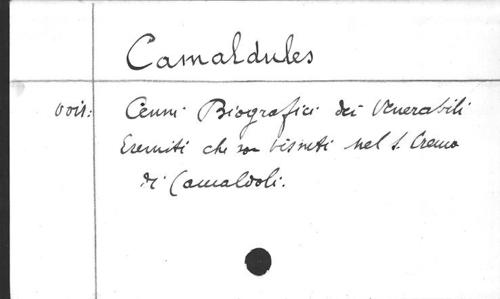 Camaldules
voir: Cenni Biografici dei Venerabili
Eremiti che son vissuti nel S. Eremo
di Camaldoli.